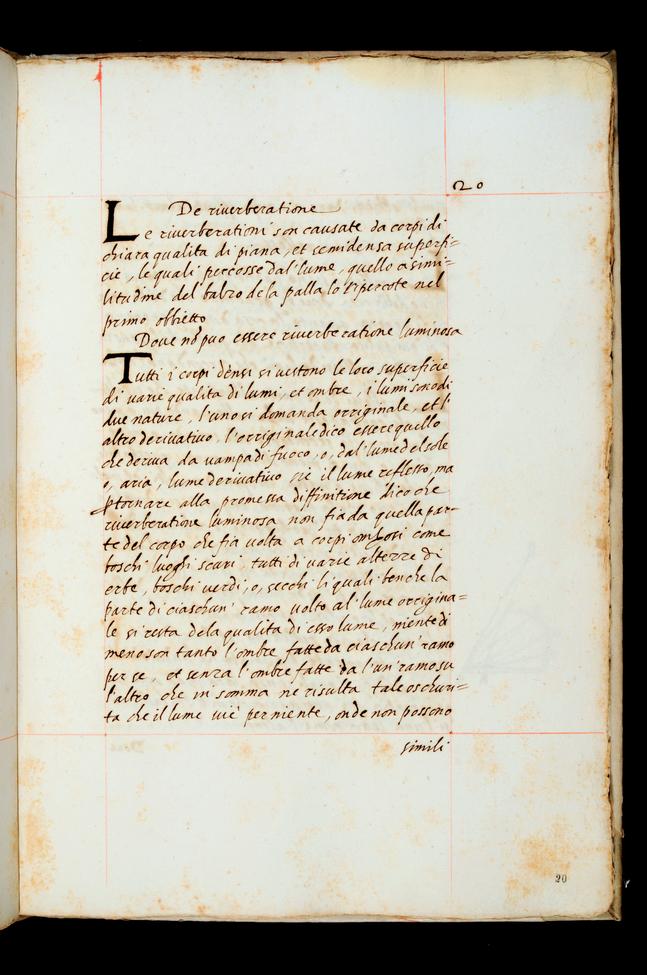 20
De riverberatione
Le riverberationi son causate da corpi di
chiara qualita di piana, et semidensa superfi=
cie, le quali percosse dal lume, quello a simi=
litudine del balzo dela palla lo ripercote nel
primo obbietto
Dove nō puo essere riverberatione luminosa
Tutti i corpi densi si vestono le loro superficie
di varie qualita di lumi, et ombre, i lumi sono di
due nature, l'uno si domanda orriginale, et l'
altro derivativo, l'orriginale dico essere quello
che deriva da vampa di fuoco, o, dal lume del sole
o, aria, lume derivativo sie il lume reflesso, ma
ꝑ tornare alla promessa diffinitione dico che
riverberatione luminosa non fia da quella par=
te del corpo che fia volta a corpi ombrosi come
boschi luoghi scuri, tutti di varie altezze di
erbe, boschi verdi, o, secchi li quali benche la
parte di ciaschun' ramo volto al' lume orrigina=
le si vesta dela qualita di esso lume, niente di
meno son tanto l'ombre fatte da ciaschun' ramo
per se, et senza l'ombre fatte da l'un' ramo su
l'altro che in somma ne risulta tale oschuri=
ta che il lume vi e per niente, onde non possono
simili
20